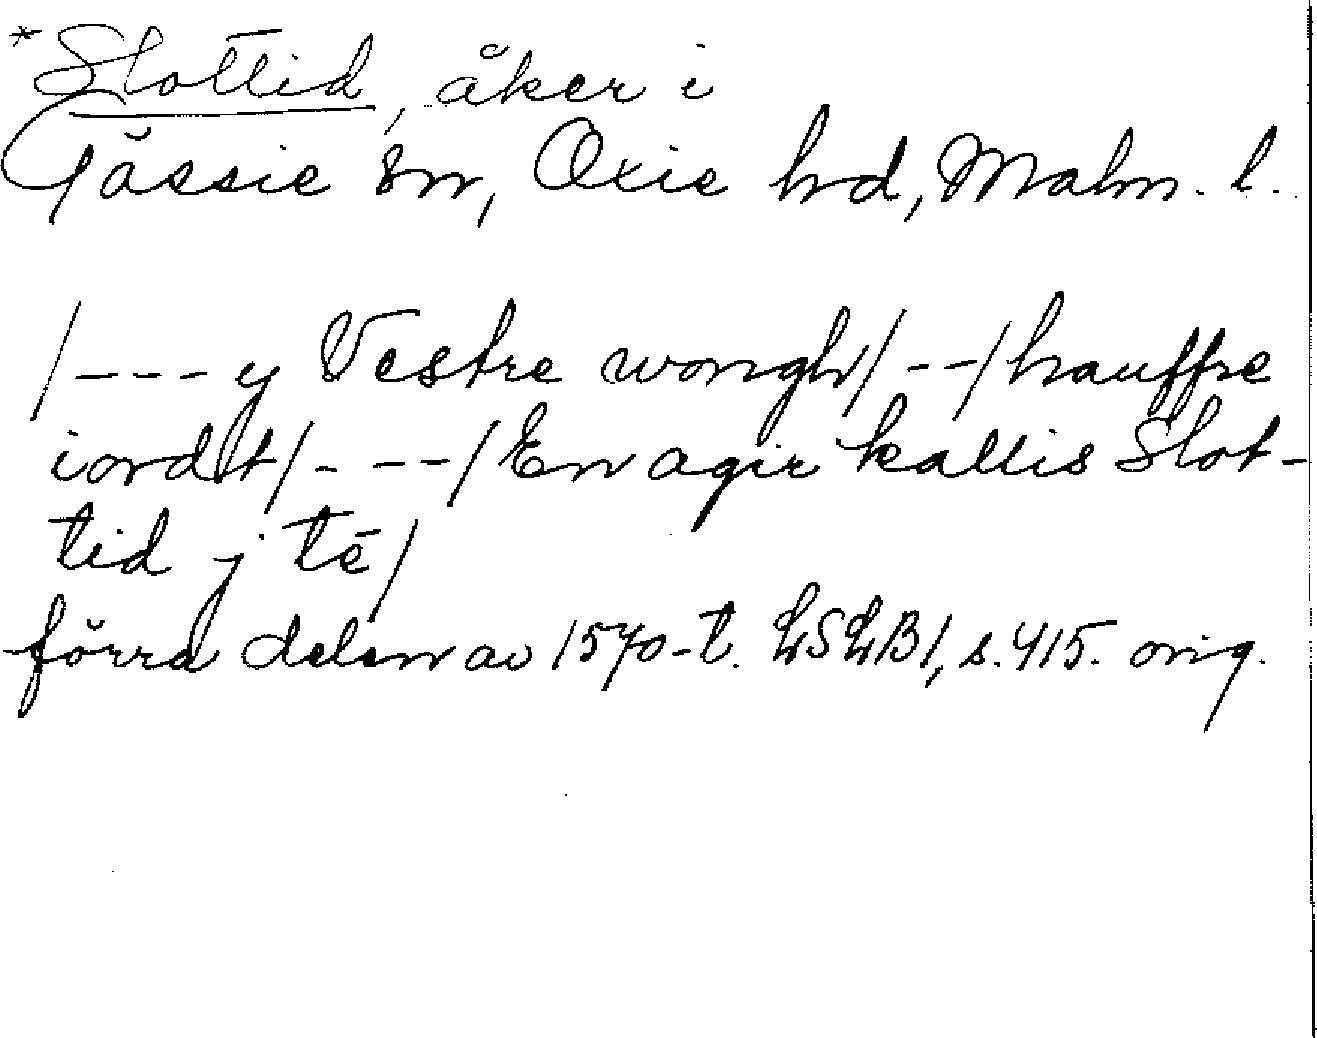 *Slottid, åker i
Gässie sn, Oxie hd, Malm. l.
/---y Vestre wongh/--/hauffre
iordt/---/En agir kallis Slot-
tid j té/
förra delen av 1570-t. LSLB1, s. 415. orig.